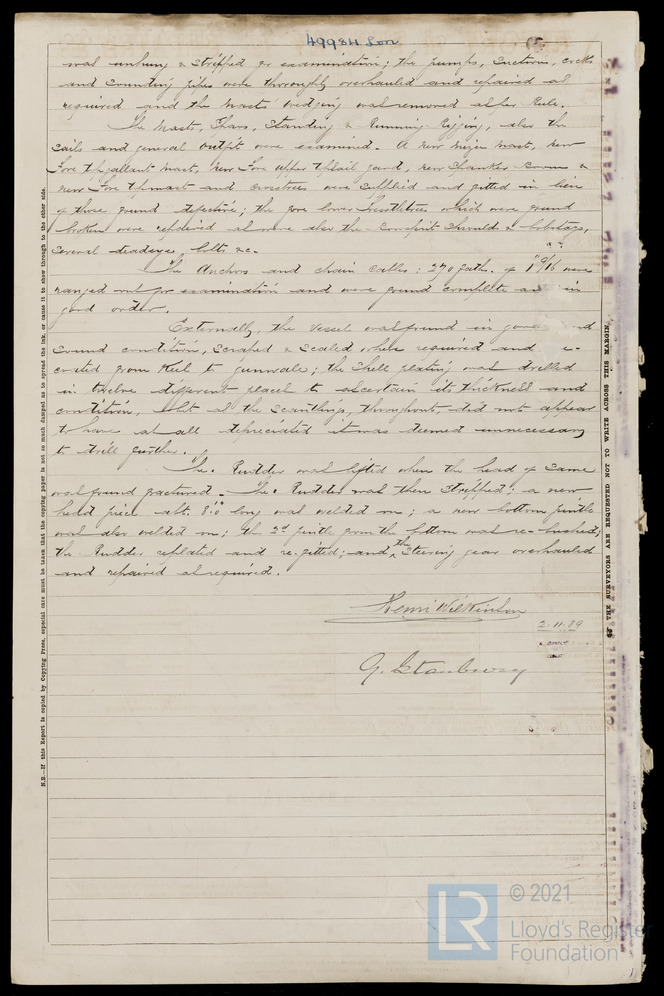 49984 Lon
was unhung & stripped for examination; the pumps, suctions, cocks
and sounding pipes were throughly overhauled and repaired as
required and the masts wedging was removed as per Rule.
The Masts, Spars, Standing & Running Rigging, also the
sails and general outfit were examined. A new mizen mast, new
Fore topgallant mast, new Fore upper topsail yard, new Spanker Boom &
new Fore topmast and crosstrees were supplied and fitted in lieu
of those found defective; the fore lower which were found
broken were replaced as were also the bowsprit shrouds & bobstays,
several deadeyes bolts &c.
The Anchors and chain Cables: 270 faths. of 1 9/16 were
ranged out for examination and were found complete and in
good order.
Externally, the vessel was found in good nd
sound condition, scraped & scaled where required and
coated from keel to gunwale; the shell plating was drilled
in twelve different places to ascertain its thickness and
condition, but as the scantlings, throughout did not appear
to have at all depreciated it was deemed unnecessary
to drill further.
The Rudder was lifted when the head of same
was found fractured. The Rudder was then stripped: a new
head piece abt. 8.0 long was welded on; a new bottom pintle
was also welded on; the 2d pintle from the bottom was re-bushed;
the Rudder replated and re-fitted; and the Steering gear overhauled
and repaired as required.
Henri Wilkinson
2.11.89
G. Stanbury
N.B.—If this Report is copied by Copying Press, especial care must be taken that the copying paper is not so much damped as to spread the ink, or cause it to show through to the other side.
THE SURVEYORS ARE REQUESTED NOT TO WRITE ACROSS THIS MARGIN.
LR
© 2021
Lloyd's Register
Foundation